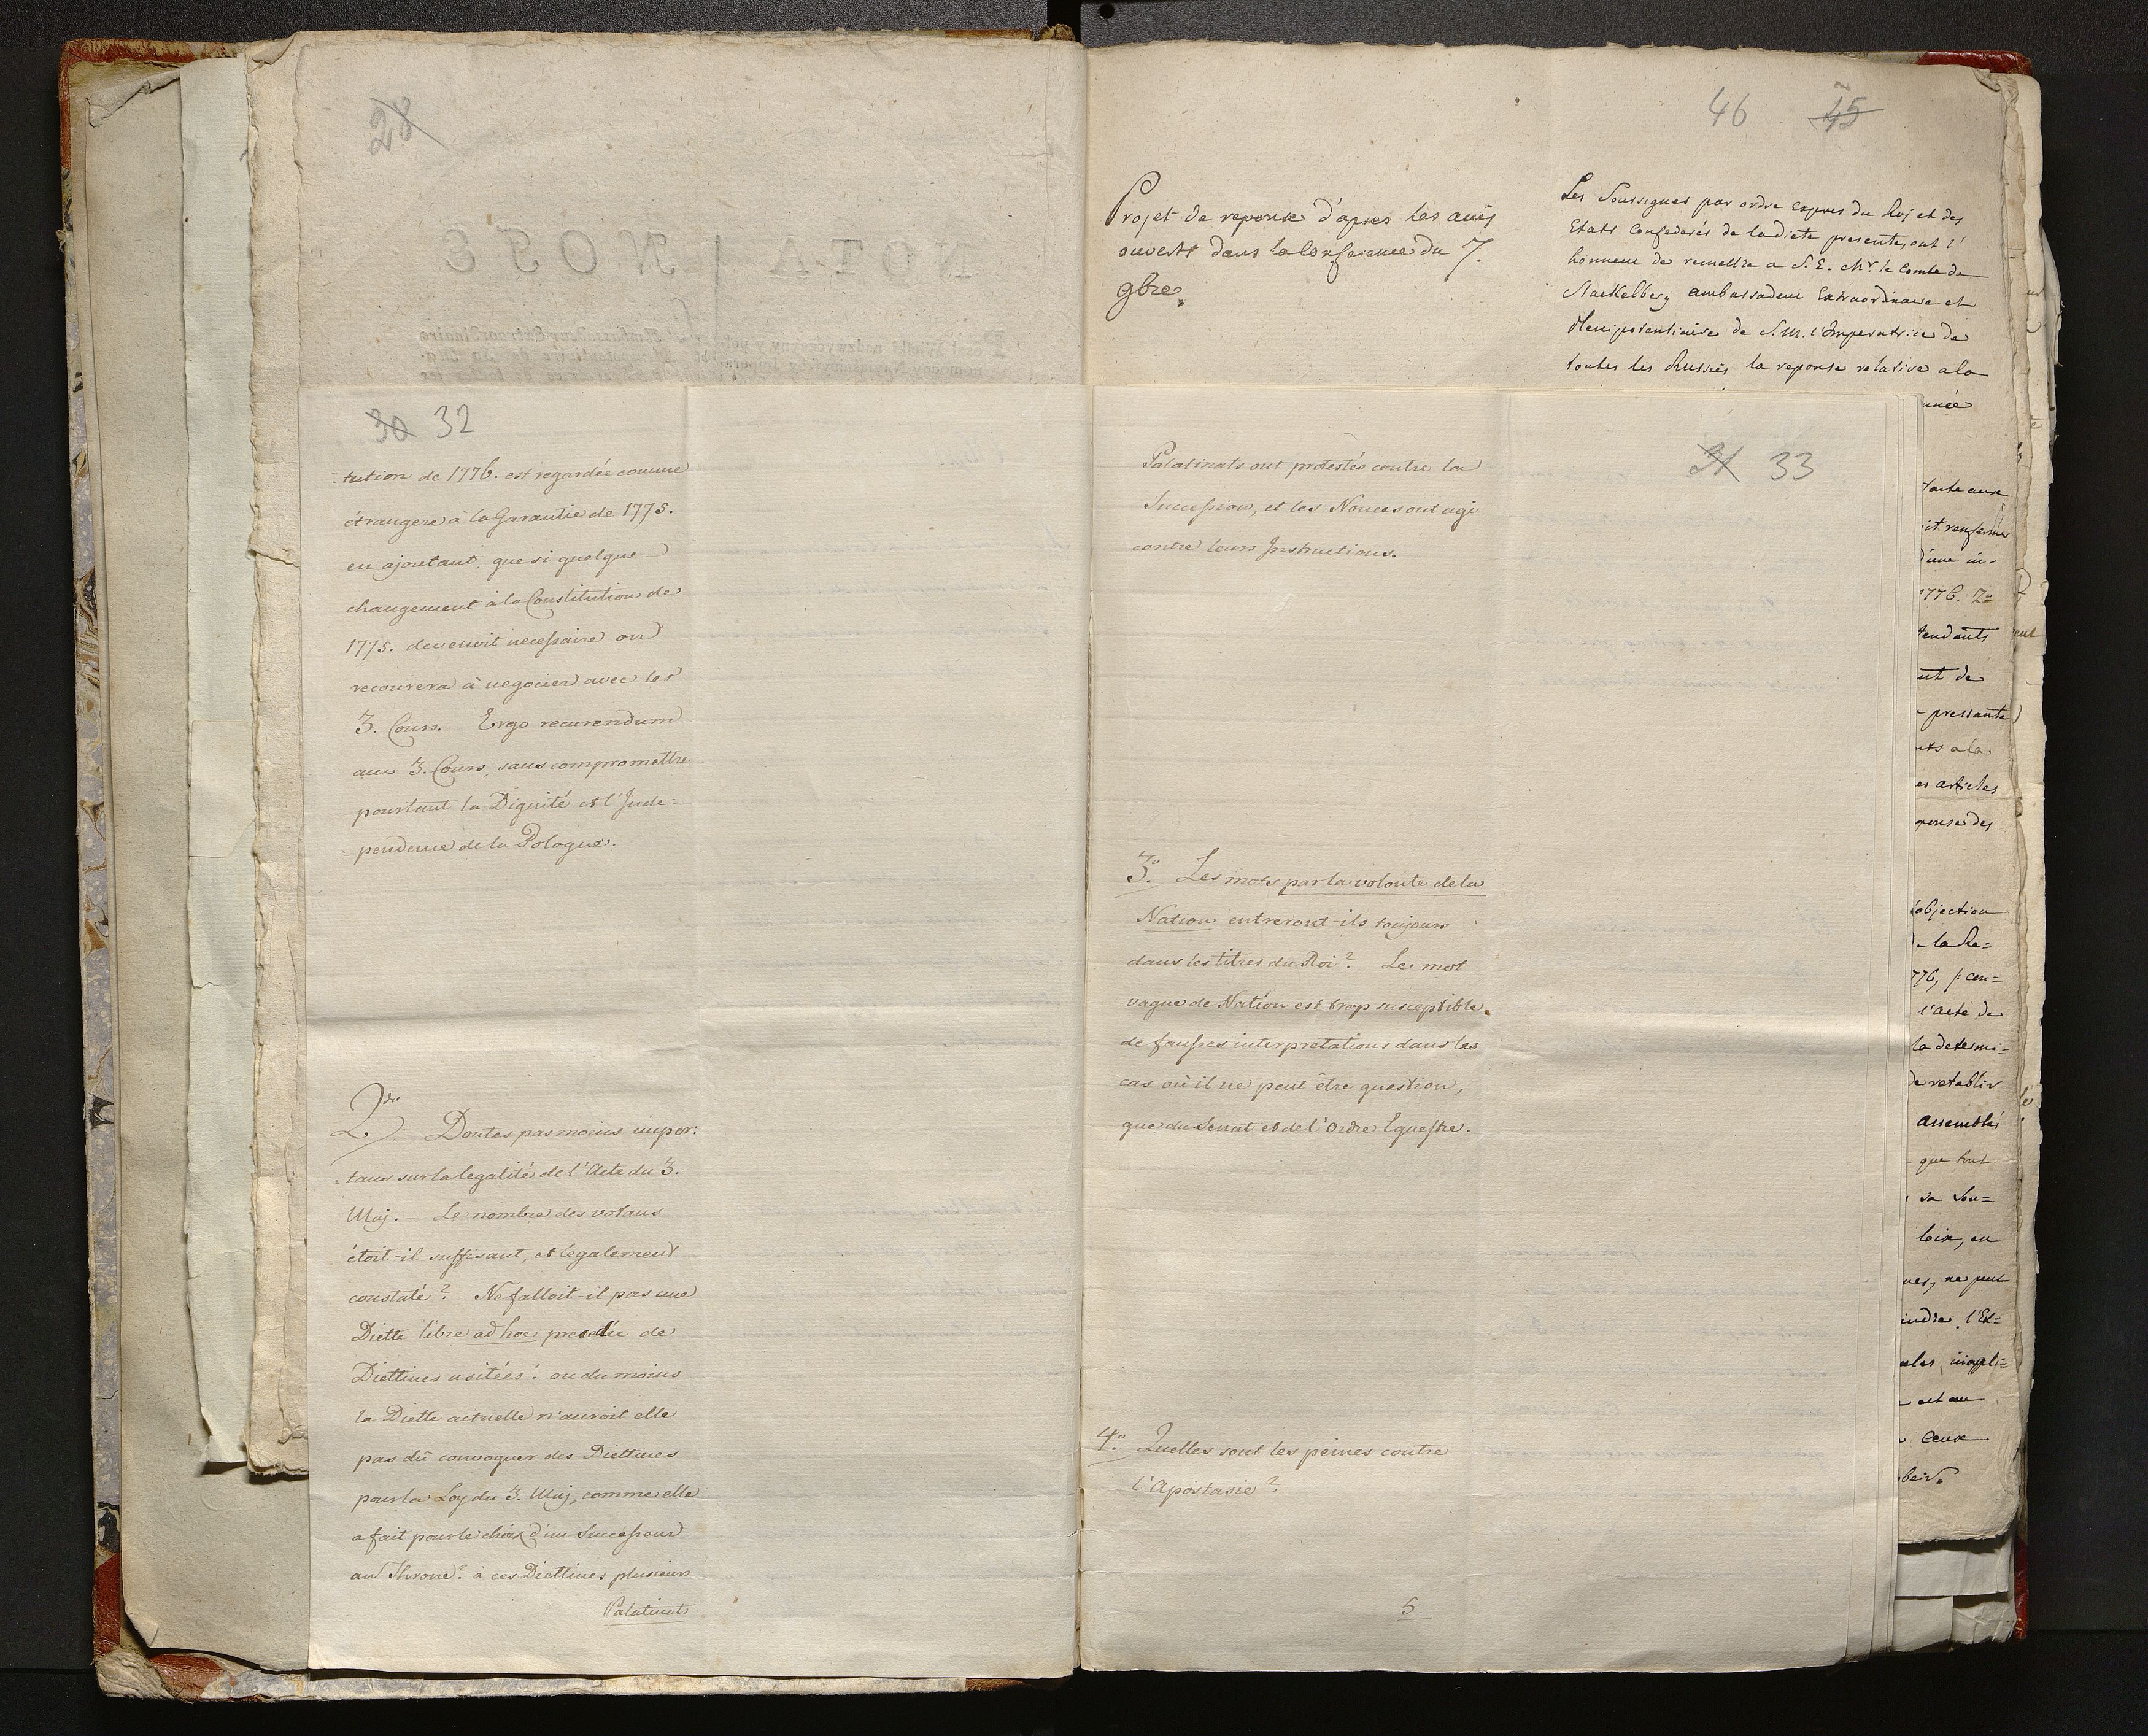 28
NOTA
NOTE
30 32
-tution de 1776. est regardée comme
étrangere à la Garantie de 1775.
en ajoutant, que si quelque
changement à la Constitution de
1775. devenoit necessaire on
recourera à negocier avec les
3. Cours. Ergo recurendum
aux 3. Cours, sans compromettre
pourtant la Dignité et l'Inde=
=pendence de la Pologne.
2do. Doutes pas moins impor:
:tans sur la legalité de l'Acte du 3.
Maj. — Le nombre des votans
étoit-il suffisant, et legalement
constaté? Ne falloit-il pas une
Diette libre ad hoc precedée de
Diettines usitées? ou du moins
la Diette actuelle n'auroit elle
pas dû convoquer des Diettines
pour la Loy du 3. Maj, comme elle
a fait pour le choix d'un Successeur
au Throne? à ces Diettines plusieurs
Palatinats
46 45
Projet de reponse d'apres les avis
ouverts dans la Conference du 7.
gbre.
Les Soussignes par ordre Expres du Roj et des
Etats Confederés de la diete presente, ont l'
honneur de remettre a S. E. Mr. le Comte de
Stackelberg ambassadeur Extraordinaire et
Plenipotentiaire de S. M. l'Imperatrice de
toutes les Russies la reponse relative a la
31 33
Palatinats ont protestés contre la
Succession, et les Nonces ont agi
contre leurs Instructions.
3o. Les mots par la volonte de la
Nation entreront-ils toujours
dans les titres du Roi? Le mot
vague de Nation est trop susceptible
de fausses interpretations dans les
cas où il ne peut être question,
que du Senat et de l'Ordre Equestre.
4o. Quelles sont les peines contre
l'Apostasie?
5
it renfermer
d'une in-
1776. 2o
tendants
ut de
pressante
ets a la
es articles
ponse des
objection
la Re=
776, s: con=
l'acte de
la determi=
de retablir
assemblés
que tout
sa Sou=
loix, en
ues, ne peut
indre l'Ex=
et au
Ceux
beir.